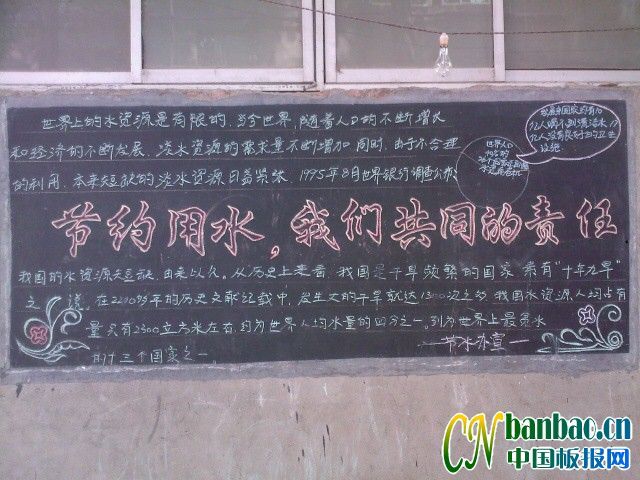 世界上的水资源是有限的,当今世界,随着人口的不断增长
和经济的不断发展、淡水资源的需求量不断增加同时,由于不合理
的利用、本来短缺的淡水资源日益紧张、1995年8月世界银行调查公布
世界人口
节约用水,我们共同的责任
我国的水资源天然短缺,由来以久。从历史上来看,我国是干旱频繁的国家 素有"十年九旱"
之 说。在2200多年的历史文献记载中,发生大的干旱就达1300次之多,我国水资源人均占有
量只有2300立方米左右,约为世界人均水量的四分之一。列为世界上最贫水
的十三个国家之一。
一节水办宣一
CN banbao.cn
中国板报网